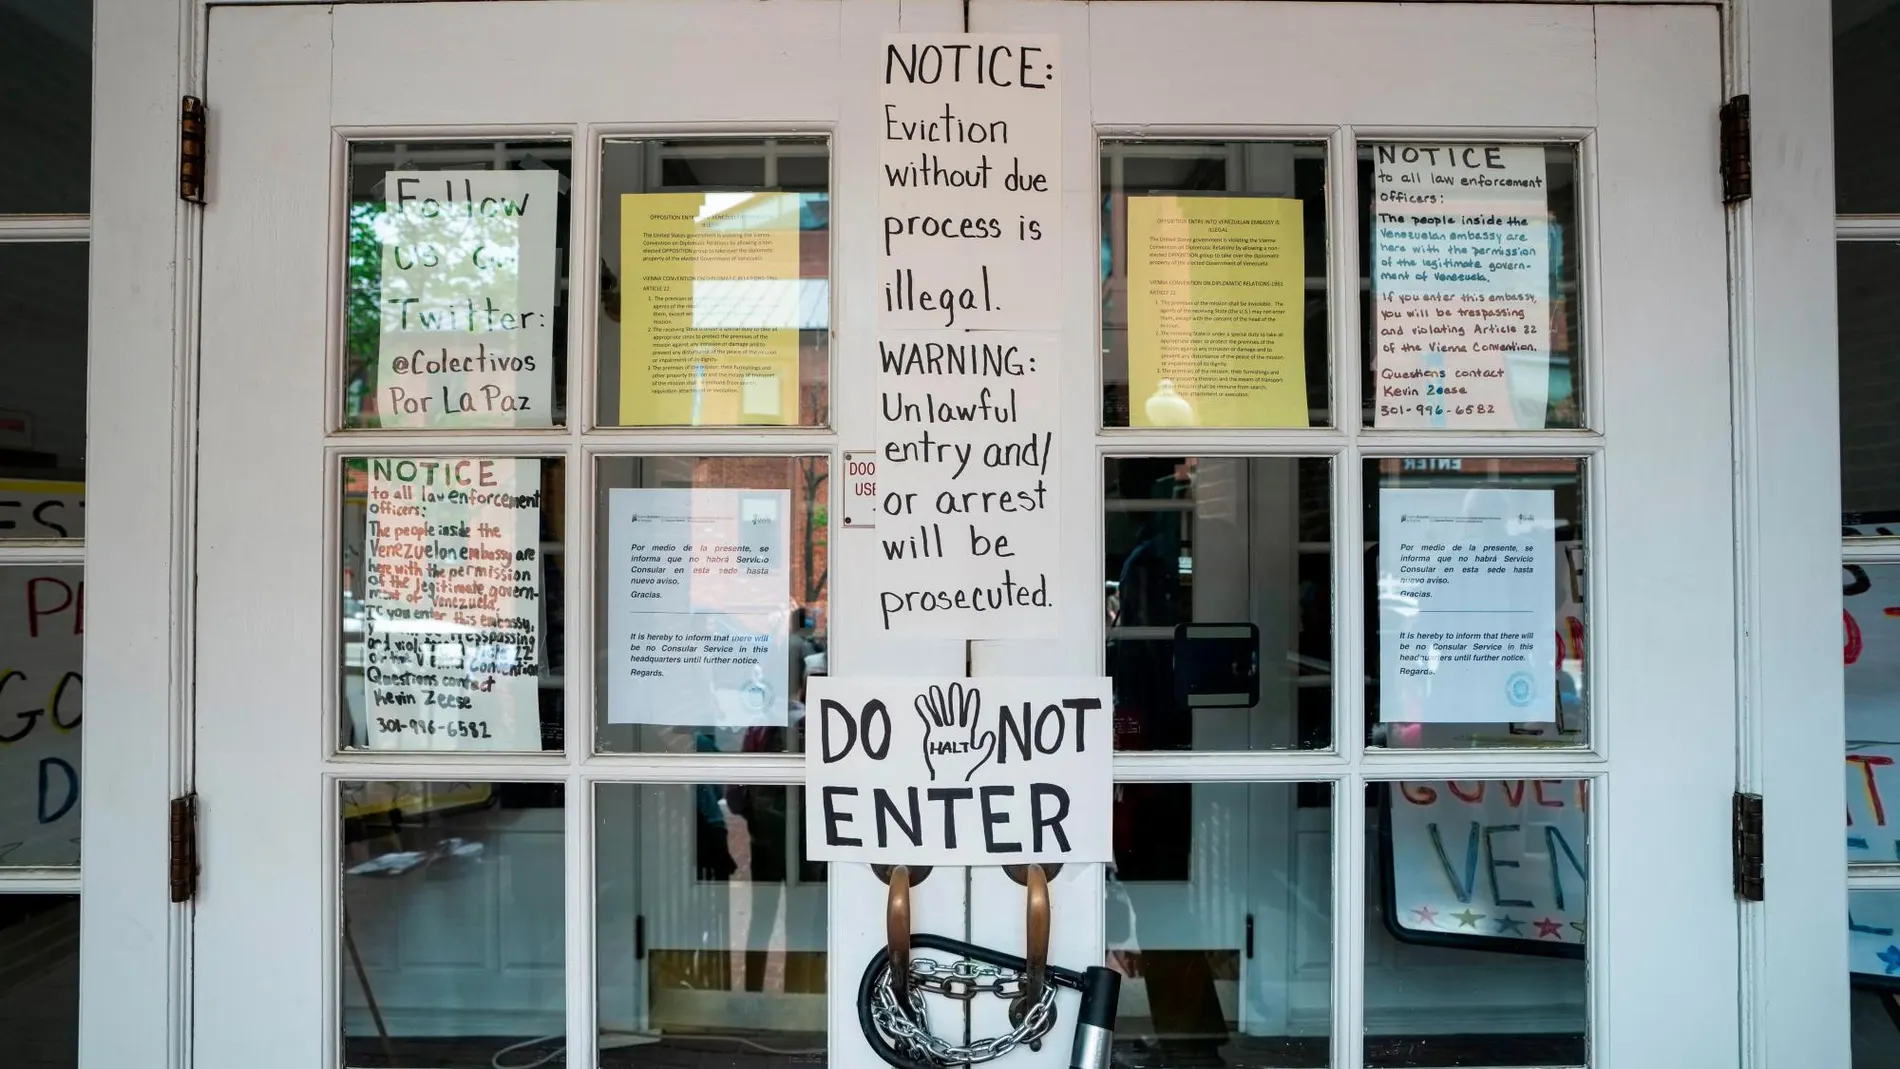 Follow
us
Twitter:
@Colectivos
Por La Paz
The United States government is violating the Vienna
Convention on Diplomatic Relations by allowing a non-
elected OPPOSITION group to take over the diplomatic
property of the elected Government of Venezuela.
VIENNA CONVENTION ON DIPLOMATIC RELATIONS-1961
ARTICLE 22:
NOTICE:
Eviction
without due
process is
illegal.
WARNING:
Unlawful
entry and/
or arrest
will be
prosecuted.
OPPOSITION ENTRY INTO VENEZUELAN EMBASSY IS
ILLEGAL
The United States government is violating the Vienna
Convention on Diplomatic Relations by allowing a non-
elected OPPOSITION group to take over the diplomatic
property of the elected Government of Venezuela.
VIENNA CONVENTION ON DIPLOMATIC RELATIONS-1961
ARTICLE 22:
1. The premises of the mission shall be inviolable. The
agents of the receiving State (the U.S.) may not enter
them, except with the consent of the head of the
mission.
2. The receiving State is under a special duty to take all
appropriate steps to protect the premises of the
mission against any intrusion or damage and to
prevent any disturbance of the peace of the mission
or impairment of its dignity.
3. The premises of the mission, their furnishings and
other property thereon and the means of transport
of the mission shall be immune from search,
attachment or execution.
NOTICE
to all law enforcement
officers:
The people inside the
Venezuelan embassy are
here with the permission
of the legitimate govern-
ment of Venezuela.
If you enter this embassy,
you will be trespassing
and violating Article 22
of the Vienna Convention.
Questions contact
Kevin Zeese
301-996-6582
NOTICE
to all law enforcement
officers:
The people inside the
Venezuelan embassy are
here with the permission
of the legitimate govern-
ment of Venezuela.
If you enter this embassy,
trespassing
and
Convention
Questions contact
Kevin Zeese
301-996-6582
Por medio de la presente, se
informa que no habrá Servicio
Consular en esta sede hasta
nuevo aviso.
Gracias.
It is hereby to inform that there will
be no Consular Service in this
headquarters until further notice.
Regards.
DOO
USE
Por medio de la presente, se
informa que no habrá Servicio
Consular en esta sede hasta
nuevo aviso.
Gracias.
It is hereby to inform that there will
be no Consular Service in this
headquarters until further notice.
Regards.
DO HALT NOT
ENTER
GOVE
VEN